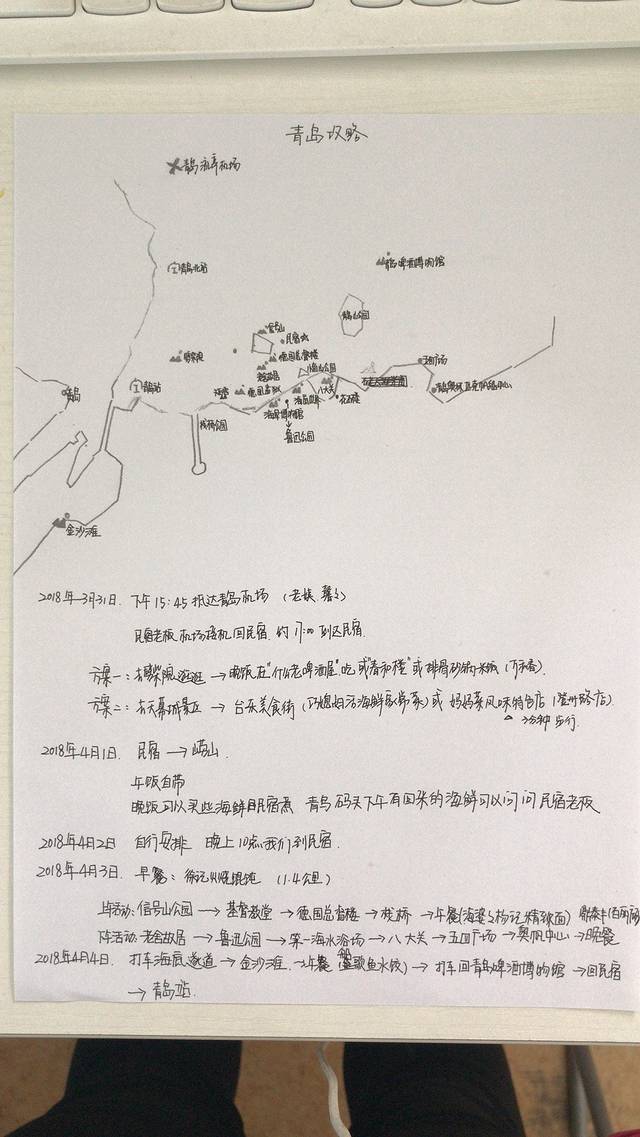 青岛攻略
青岛流亭机场
青岛北站
青岛啤酒博物馆
信号山
民宿
德国总督楼
劈柴院
八大关
五四广场
青岛站
栈桥公园
花石楼
海军博物馆
鲁迅公园
金沙滩
2018年3月31日. 下午15:45抵达青岛机场
民宿老板机场接机回民宿. 约17:00到达民宿.
方案一: 去劈柴院逛逛 → 晚饭在"什么老啤酒屋"吃或"春和楼"或排骨砂锅米饭
方案二: 去天幕城景区 → 台东美食街 或 妈妈菜风味特色店
3分钟步行
2018年4月1日. 民宿 → 崂山.
午饭自带
晚饭可以买些海鲜 民宿煮 青岛码头下午有回来的海鲜可以问问民宿老板
2018年4月2日 自行安排 晚上10点我们到民宿.
2018年4月3日. 早餐: 徐记 馄饨 (1.4公里)
上午活动: 信号山公园 → 基督教堂 → 德国总督楼 → 栈桥 → 午餐
下午活动: 老舍故居 → 鲁迅公园 → 第一海水浴场 → 八大关 → 五四广场 → 奥帆中心 → 晚餐
2018年4月4日. 打车海底隧道 → 金沙滩 → 午餐 (船歌鱼水饺) → 打车回青岛啤酒博物馆 → 回民宿
→ 青岛站.